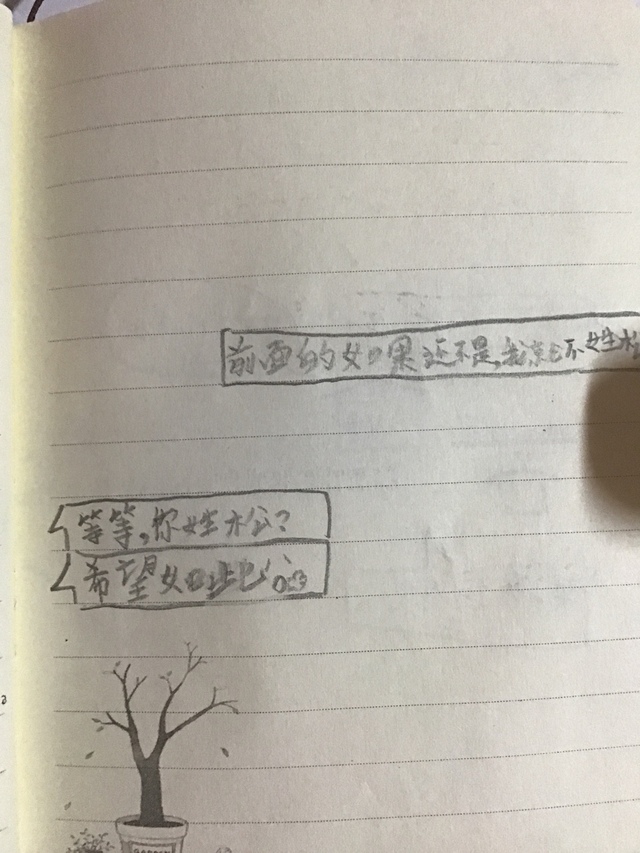 前面的如果还不是,我就不姓松
等等,你姓松?
希望如此